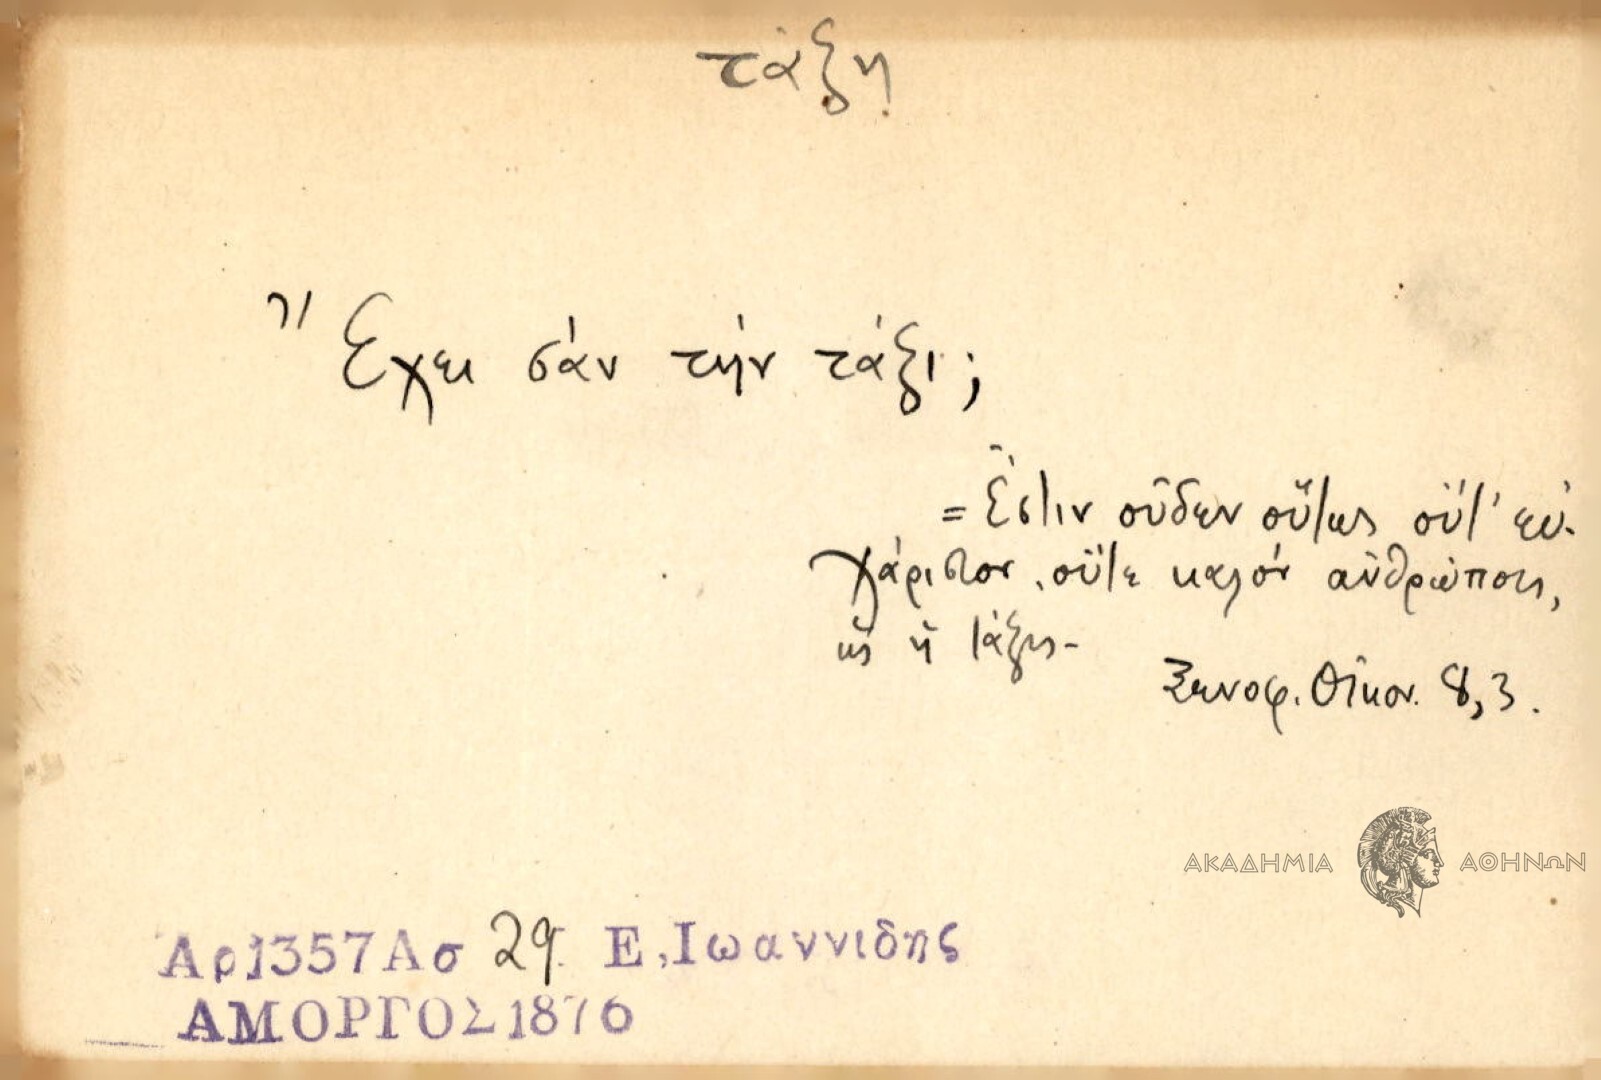 τάξη
Ἔχει σὰν τὴν τάξι;
= Ἔστιν οὐδὲν οὕτως οὔτ' εὐ-
χάριστον, οὔτε καλὸν ἀνθρώποις,
ὡς ἡ τάξις-
Ξενοφ. Οἰκον. 8, 3.
ΑΚΑΔΗΜΙΑ ΑΘΗΝΩΝ
Αρ1357Ασ 29. Ε. Ιωαννιδης
ΑΜΟΡΓΟΣ 1876